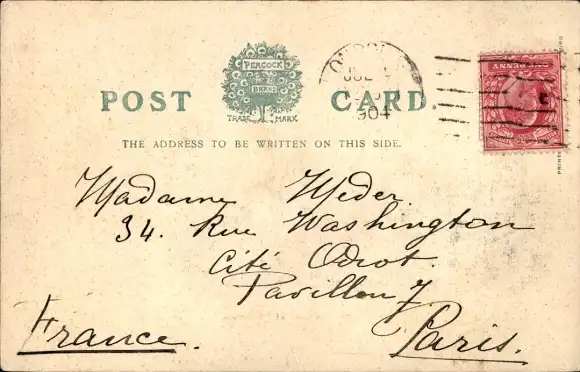 POST CARD
PEACOCK
BRAND
TRADE MARK
THE ADDRESS TO BE WRITTEN ON THIS SIDE.
JUL
904
Madame Meder
34. Rue Washington
Cité Odiot.
Pavillon 7
France.
Paris.